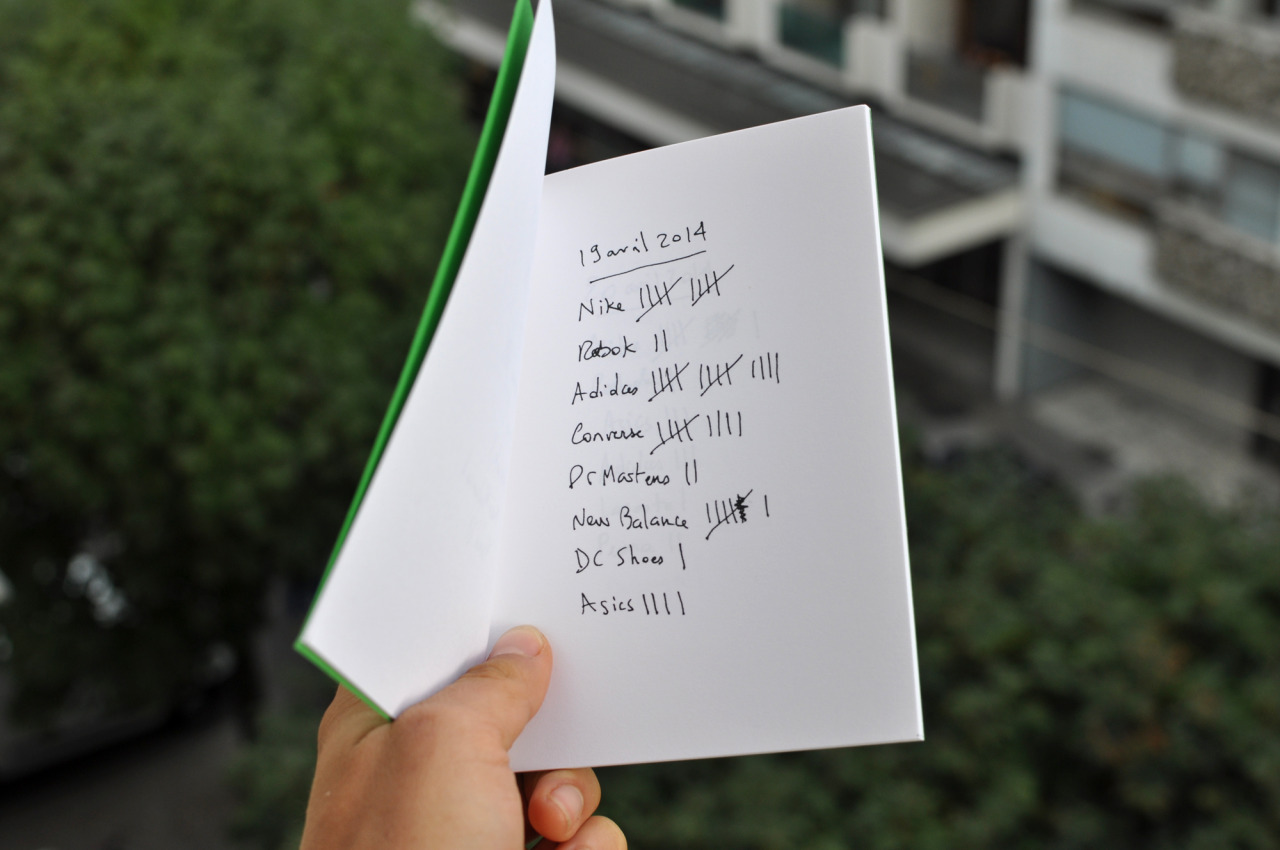 19 avril 2014
Nike |||| ||||
Rebok ||
Adidas |||| |||| ||||
Converse |||| ||||
Dr Mastens ||
New Balance |||| |
DC Shoes |
Asics ||||